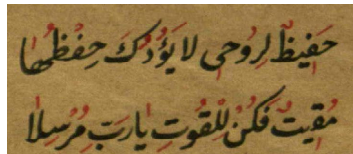 حَفِيظٌ لِرُوحِي لَا يَؤُدُكَ حِفْظُهَا
مُقِيتٌ فَكُنْ لِلْقُوتِ يَارَبِّ مُرْسِلَا